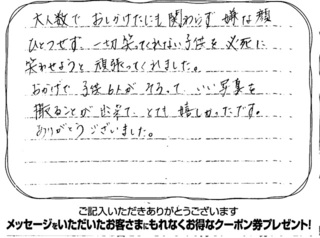 大人数で おしかけたにも関わらず 嫌な顔
ひとつせず、一切笑ってくれない子供を必死に
笑わせようと 頑張ってくれました。
おかげで 子供6人が そろって いい写真を
撮ることが 出来て とても 嬉しかったです。
ありがとうございました。
ご記入いただきありがとうございます
メッセージをいただいたお客さまにもれなくお得なクーポン券プレゼント!